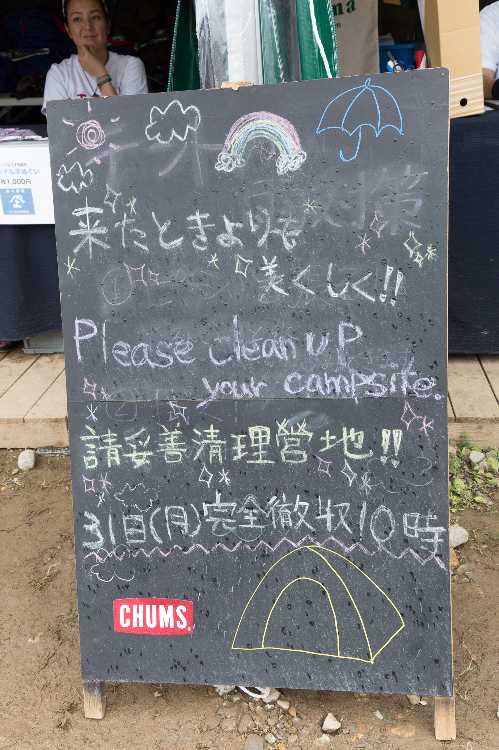 来たときよりも
美くしく!!
Please clean up
your campsite.
請妥善清理営地!!
31日(月)完全徹収10時
CHUMS